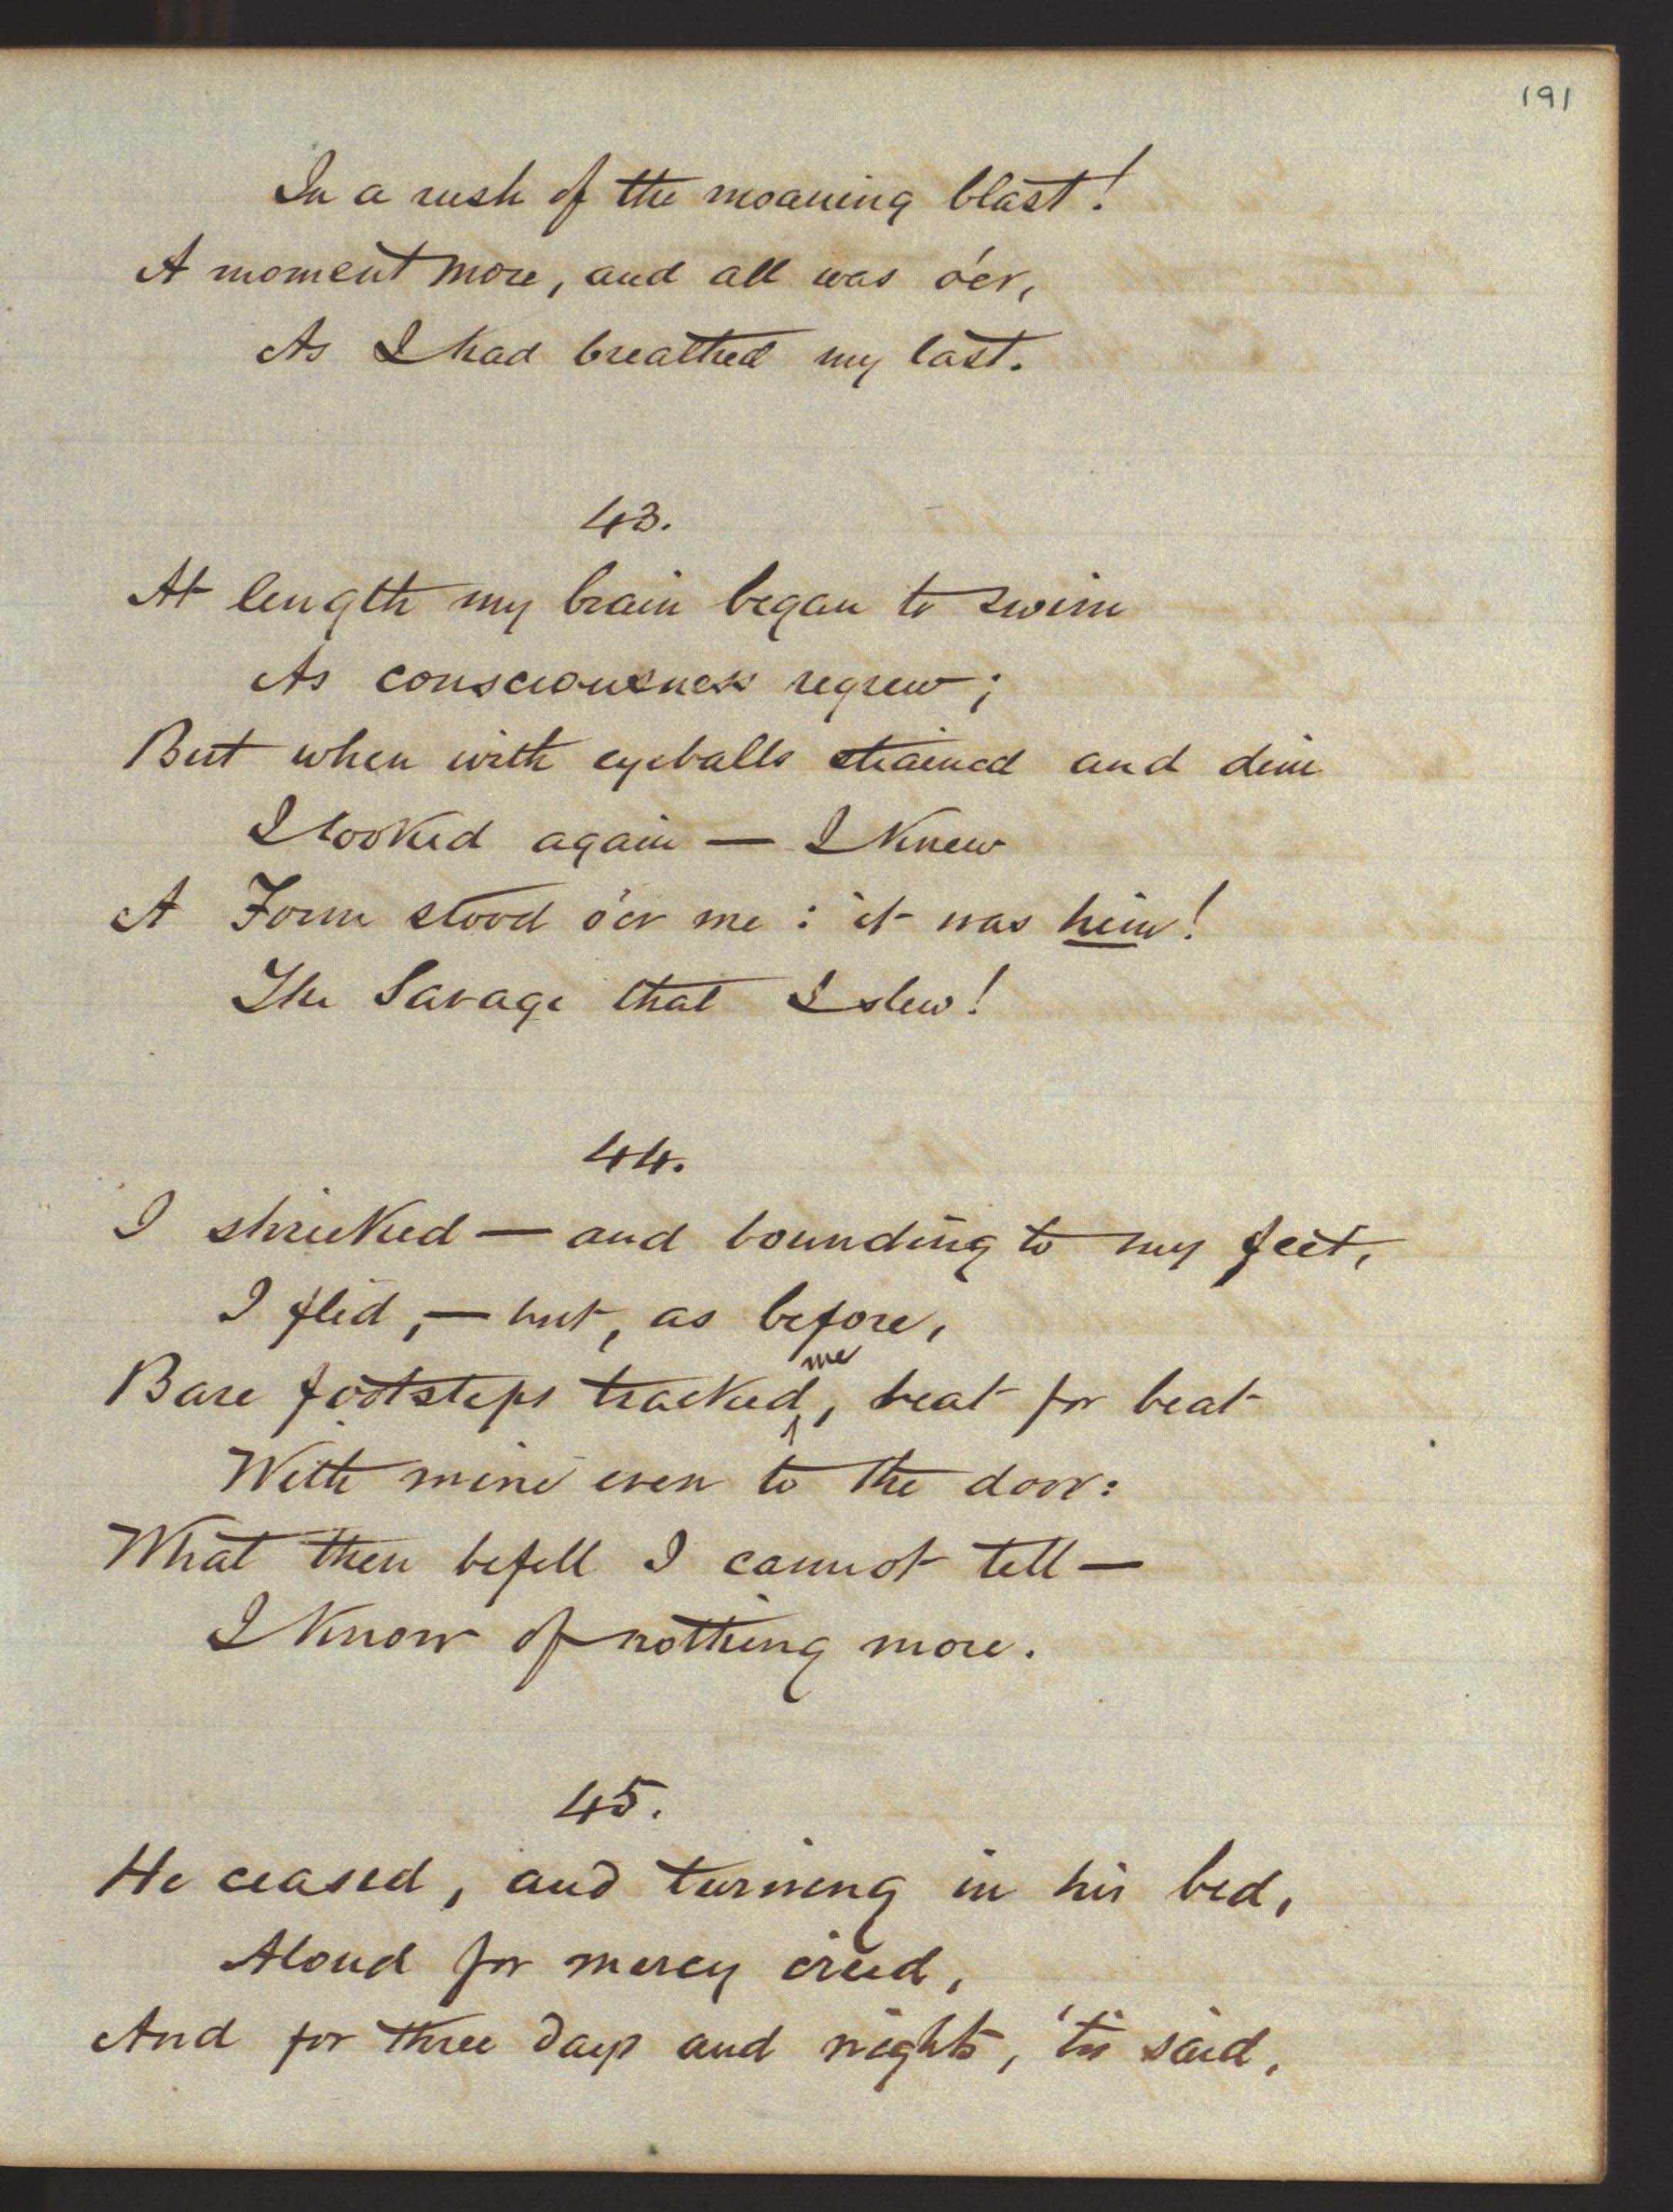 191
In a rush of the moaning blast!
A moment more, and all was o'er,
As I had breathed my last.
43.
At length my brain began to swim
As consciousness regrew;
But when with eyeballs strained and dim
I looked again — I knew
A Form stood o'er me: it was him!
The Savage that I slew!
44.
I shrieked — and bounding to my feet,
I fled, — but, as before,
Bare footsteps tracked me, beat for beat
With mine even to the door:
What then befell I cannot tell —
I know of nothing more.
45.
He ceased, and turning in his bed,
Aloud for mercy cried,
And for three days and nights, 'tis said,